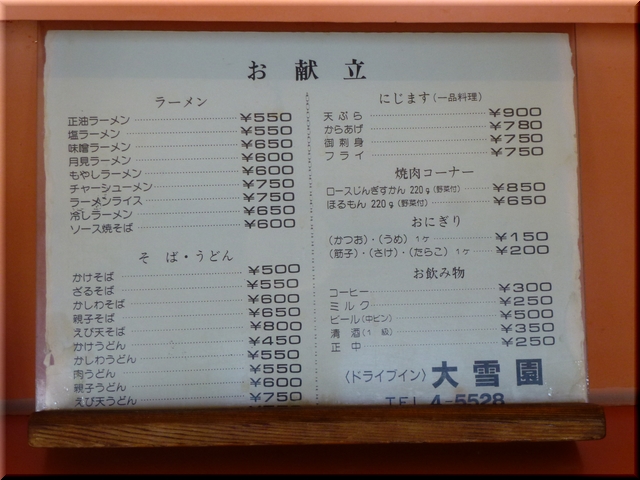 お献立
ラーメン
正油ラーメン ¥550
塩ラーメン ¥550
味噌ラーメン ¥650
月見ラーメン ¥600
もやしラーメン ¥600
チャーシューメン ¥750
ラーメンライス ¥750
冷しラーメン ¥650
ソース焼そば ¥600
そば・うどん
かけそば ¥500
ざるそば ¥550
かしわそば ¥600
親子そば ¥650
えび天そば ¥800
かけうどん ¥450
かしわうどん ¥550
肉うどん ¥550
親子うどん ¥600
えび天うどん ¥750
にじます(一品料理)
天ぷら ¥900
からあげ ¥780
御刺身 ¥750
フライ ¥750
焼肉コーナー
ロースじんぎすかん 220g(野菜付) ¥850
ほるもん 220g(野菜付) ¥650
おにぎり
(かつお)・(うめ) 1ヶ ¥150
(筋子)・(さけ)・(たらこ) 1ヶ ¥200
お飲み物
コーヒー ¥300
ミルク ¥250
ビール(中ビン) ¥500
清酒(1級) ¥350
正中 ¥250
〈ドライブイン〉大雪園
TEL 4-5528